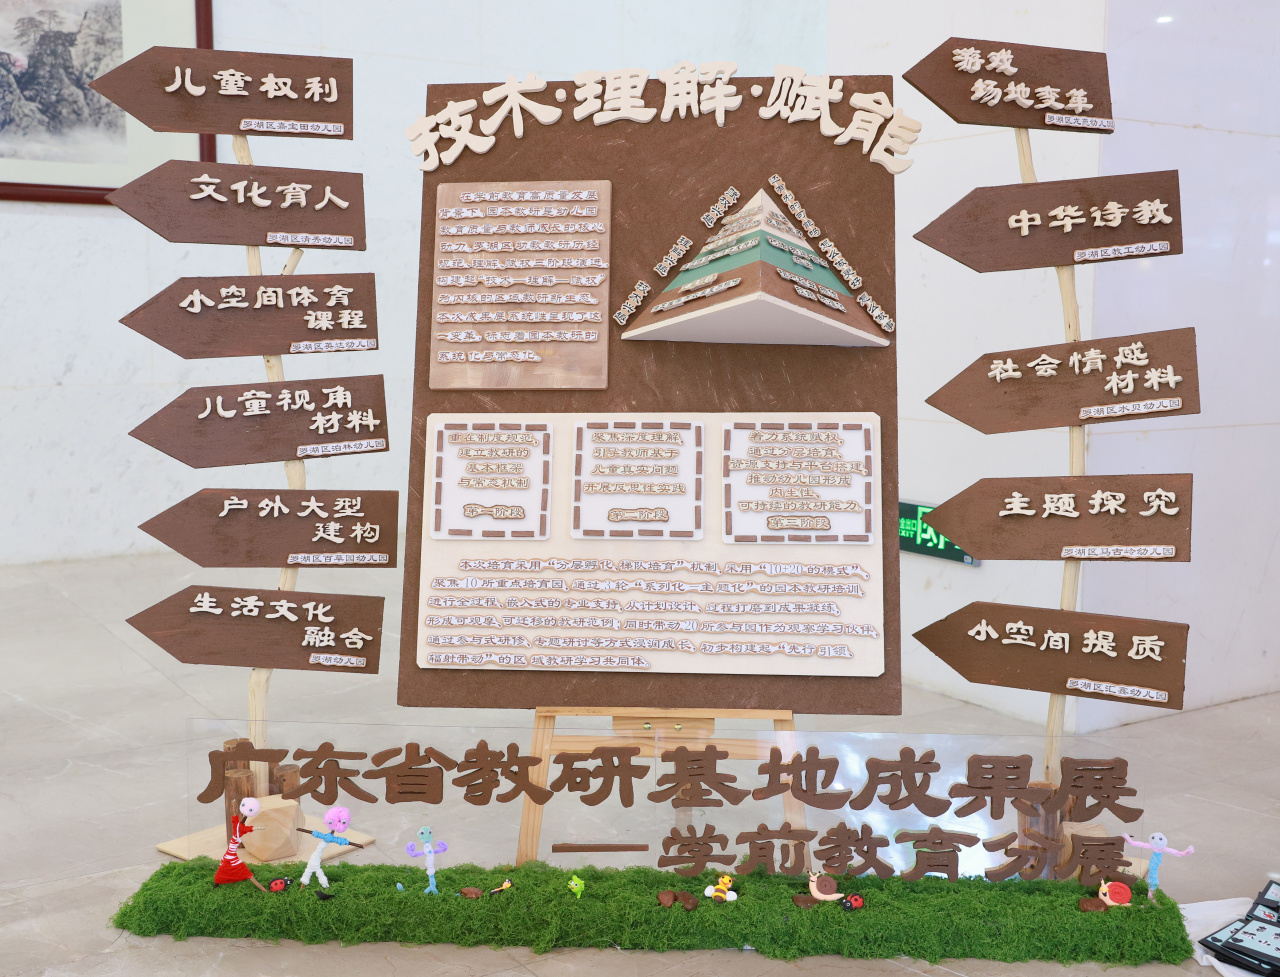 技术·理解·赋能
儿童权利
罗湖区嘉宝田幼儿园
文化育人
罗湖区清秀幼儿园
小空间体育
课程
罗湖区英达幼儿园
儿童视角
材料
罗湖区泊林幼儿园
户外大型
建构
罗湖区百草园幼儿园
生活文化
融合
罗湖幼儿园
在学前教育高质量发展
背景下，园本教研是幼儿园
教育质量与教师成长的核心
动力。罗湖区幼教教研历经
规范、理解、赋权三阶段演进
构建起“技术—理解—赋权”
为内核的区域教研新生态。
本次成果展系统性呈现了这
一变革，标志着园本教研的
系统化与常态化。
重在制度规范，
建立教研的
基本框架
与常态机制
第一阶段
聚焦深度理解，
引导教师基于
儿童真实问题
开展反思性实践
第二阶段
着力系统赋权，
通过分层培育、
资源支持与平台搭建，
推动幼儿园形成
内生性、
可持续的教研能力。
第三阶段
本次培育采用“分层孵化、梯队培育”机制，采用“10+20的模式”，
聚焦10所重点培育园，通过3轮“系列化—主题化”的园本教研培训，
进行全过程、嵌入式的专业支持，从计划设计、过程打磨到成果凝练，
形成可观摩、可迁移的教研范例；同时带动20所参与园作为观察学习伙伴，
通过参与式研修、专题研讨等方式浸润成长，初步构建起“先行引领、
辐射带动”的区域教研学习共同体。
游戏
场地变革
中华诗教
罗湖区教工幼儿园
社会情感
材料
罗湖区水贝幼儿园
主题探究
罗湖区马古岭幼儿园
小空间提质
罗湖区汇鑫幼儿园
EXIT
广东省教研基地成果展
—学前教育分展